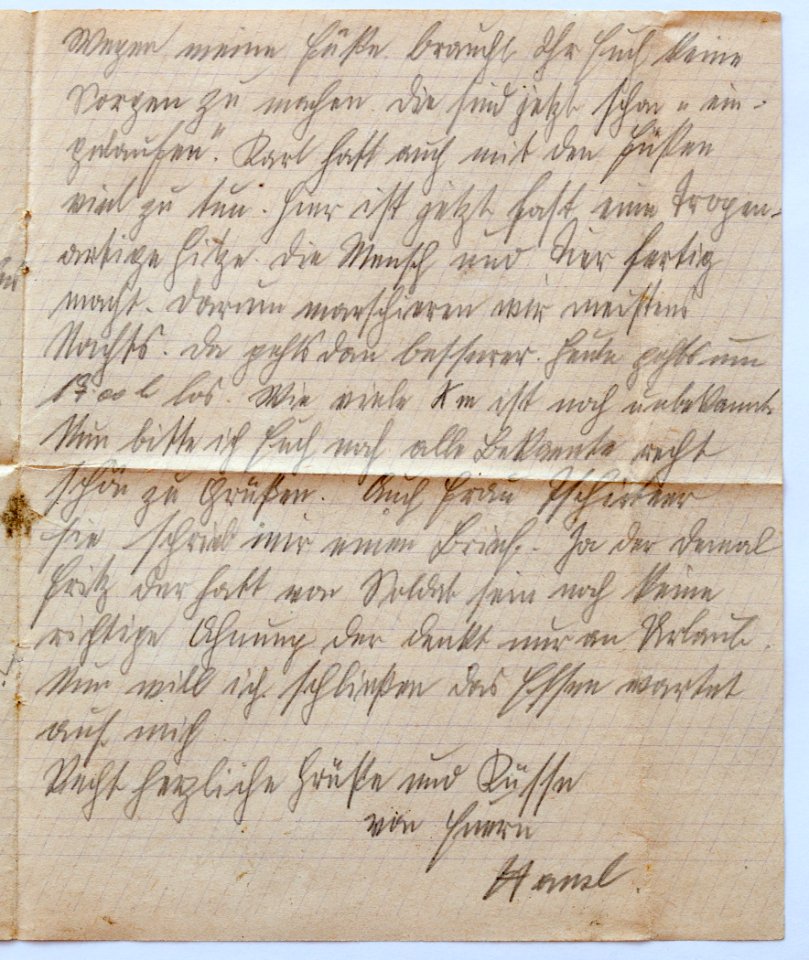 Wegen meine Füße braucht Ihr Euch keine
Sorgen zu machen. die sind jetzt schon „ein-
gelaufen". Karl hatt auch mit den Füßen
viel zu tun. Hier ist jetzt fast eine Tropen-
artige Hitze. die Mensch und Tier fertig
macht. Darum marschieren wir meistens
Nachts. Da gehts dan besserer. Heute gehts um
los. Wie viele Km ist noch unbekannt.
Nun bitte ich Euch noch alle Bekannte recht
schön zu Grüßen. Auch Frau
sie schrieb mir einen Brief. Ja der
Fritz der hatt von Soldat sein noch keine
richtige Ahnung der denkt nur an Urlaub.
Nun will ich schließen das Essen wartet
auf mich
Recht herzliche Grüße und Küsse
von Euern
Hansl.